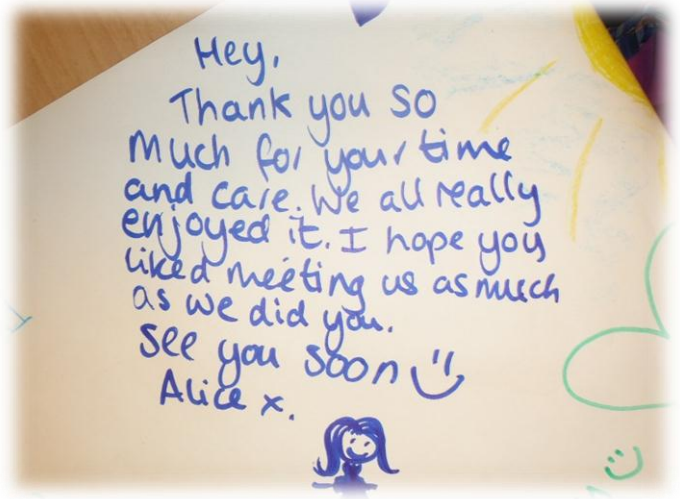 Hey,
Thank you so
Much for your time
and care. We all really
enjoyed it. I hope you
liked meeting us as much
as we did you.
See you soon
Alice x.